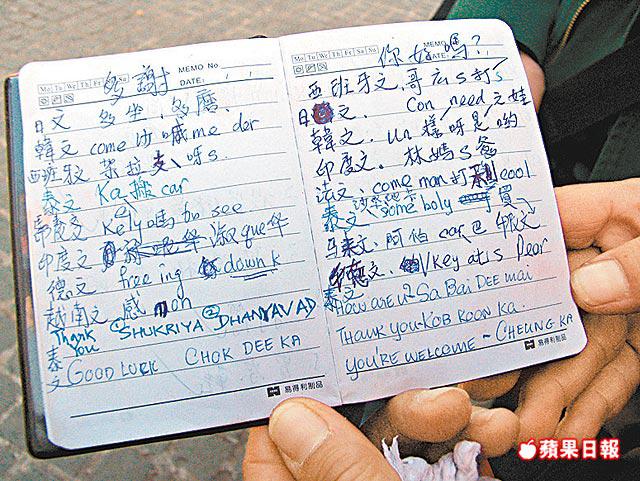 Mo Tu We Th Fr Sa Su
MEMO No.
DATE: / /
多謝
日文 多坐、多磨、
韓文 come 沙 喊 me der
西班牙文 架拉 呀s
泰文 Ka 撳 car
印度文 淑 que 华
德文 free ing down k
越南文 感 on
Thank You ① SHUKRIYA ② DHANYAVAD
泰文 GOOD LUCK CHOK DEE KA
易得利制品
Mo Tu We Th Fr Sa Su
MEMO
DATE:
你好嗎?
西班牙文、哥 s 打s
日文、 Con need 之娃
韓文、un 樣呀是喲
印度文、林媽s爸
法文、come man 打 cool
泰文 some boly 買
马来文、阿伯 car 巴
德文、Vkey at s Dear
泰文 How are u? SA BAI DEE mai
THANK YOU-KOB KOON KA.
YOU'RE WELCOME - CHEUNG KA
易得利制品
蘋果日報